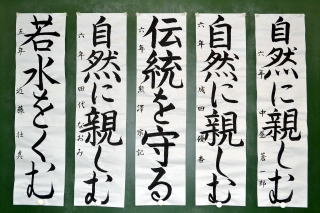 自然に親しむ
六年
伝統を守る
六年 熊澤
自然に親しむ
六年 田代 なおみ
若水をくむ
五年 近藤
自然に親しむ
六年 成田